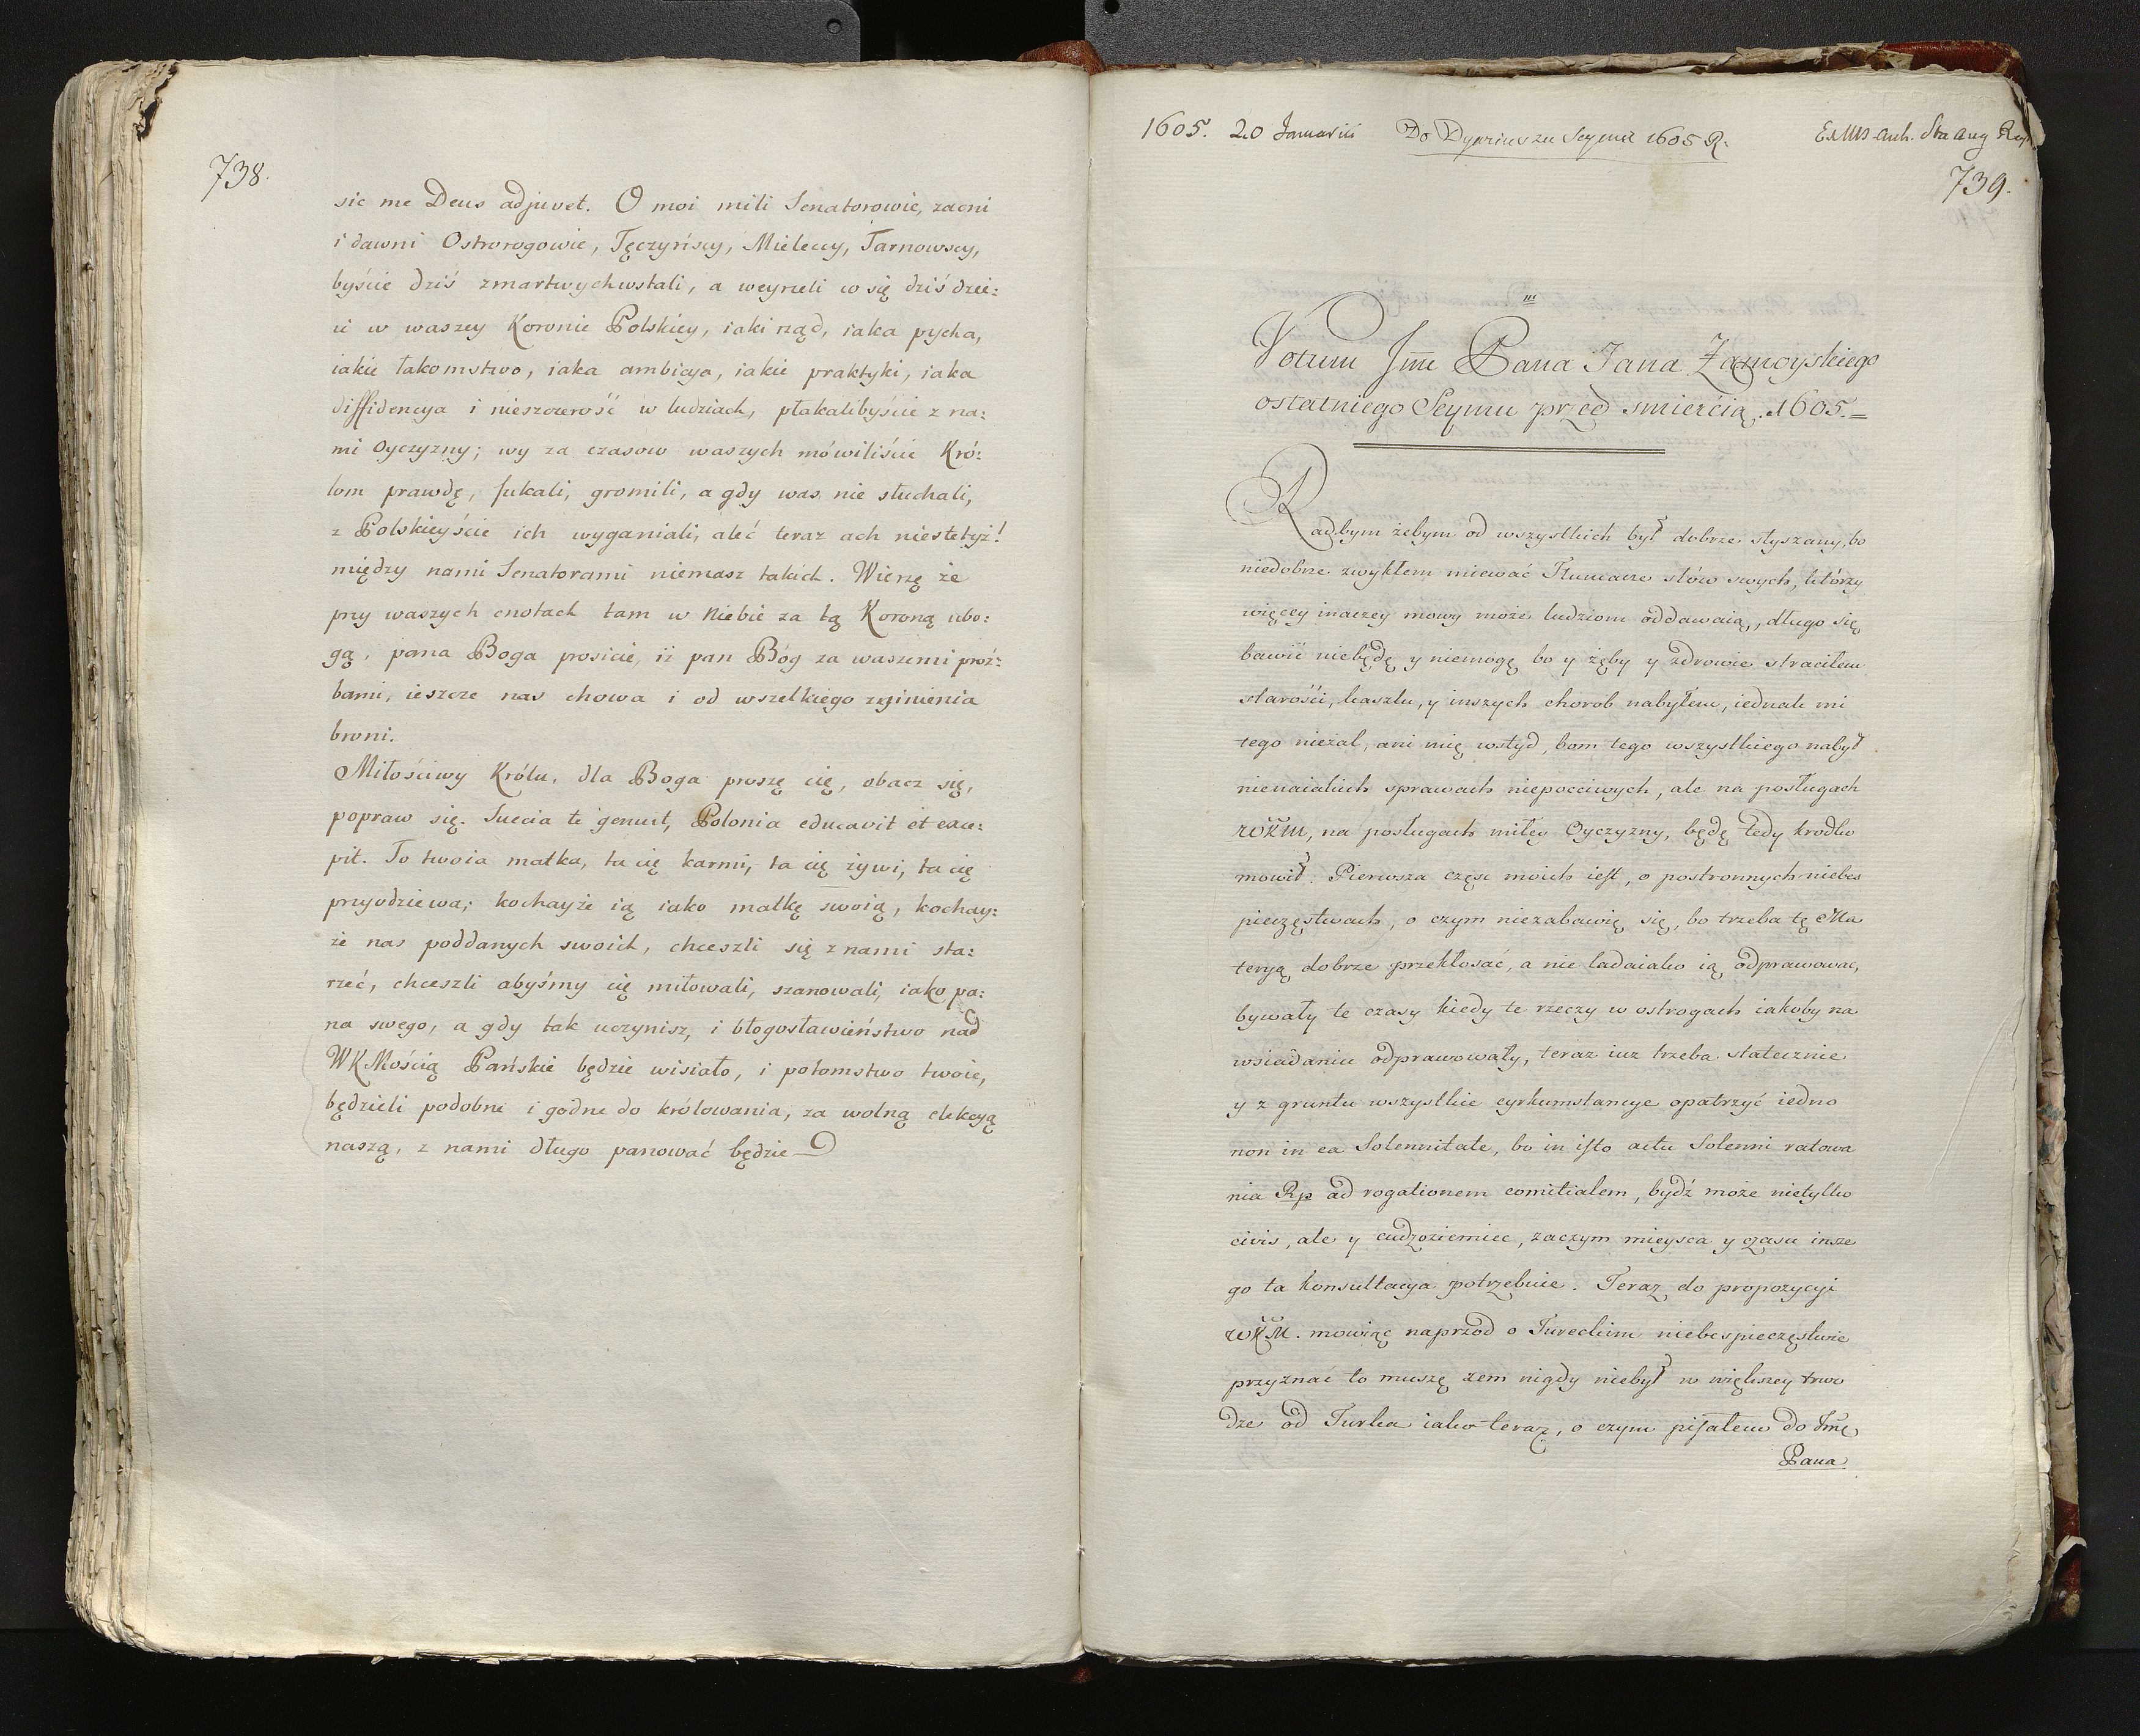 738.
sic me Deus adjuvet. O moi mili Senatorowie, zacni
i dawni Ostrorogowie, Tęczyńscy, Mieleccy, Tarnowscy,
byście dziś zmartwychwstali, a weyrzeli w się dziś dzie:
ie w waszey Koronie Polskiey, iaki rząd, iaka pycha,
iakie łakomstwo, iaka ambicya, iakie praktyki, iaka
diffidencya i nieszczerość w ludziach, płakalibyście z na:
mi Oyczyzny; wy za czasow waszych mówiliście Kró:
lom prawdę, fukali, gromili, a gdy was nie słuchali,
z Polskieyście ich wyganiali, aleć teraz ach niestetyż!
między nami Senatorami niemasz takich. Wierzę że
przy waszych cnotach tam w Niebie za tą Koroną ubo:
gą, pana Boga prosicie, iż pan Bóg za waszemi proź:
bami, ieszcze nas chowa i od wszelkiego zginienia
broni.
Miłościwy Królu, dla Boga proszę cię, obacz się,
popraw się. Suecia te genuit, Polonia educavit et exce:
pit. To twoia matka, ta cię karmi, ta cię żywi, ta cię
przyodziewa; kochayże ią iako matkę swoią, kochay:
że nas poddanych swoich, chceszli się z nami sta:
rzeć, chceszli abyśmy cię miłowali, szanowali, iako pa:
na swego, a gdy tak uczynisz, i błogosławieństwo nad
WKMością Pańskie będzie wisiało, i potomstwo twoie,
będzieli podobne i godne do królowania, za wolną elekcyą
naszą, z nami długo panować będzie
1605. 20 Januarii Do Dyariuszu Seymu 1605 R. Ex MS Arch. Sta Aug
739.
Votum Jm Pana Jana Zamoyskiego
ostatniego Seymu przed smierćią. 1605.=
Radbym żebym od wszystkich był dobrze słyszany, bo
niedobrze zwykłem miewać Tłumacze słów swych, którzy
więcey inaczey mowy może ludziom oddawaią, długo się
bawić niebędę y niemogę bo y zęby y zdrowie straciłem
starości, kaszlu, y inszych chorob nabyłem, iednak mi
tego nieżal, ani mię wstyd, bom tego wszystkiego nabył
nienaiakich sprawach niepoccciwych, ale na posługach
WKM, na posługach miłey Oyczyzny, będę tedy krodko
mowił. Pierwsza częsc moich iest, o postronnych niebes
pieczęstwach, o czym niezabawię się, bo trzeba tę Ma
teryą dobrze przekłosać, a nie ladaiako ią odprawowac,
bywały te czasy kiedy te rzeczy w ostrogach iakoby na
wsiadaniu odprawowały, teraz iuz trzeba statecznie
y z gruntu wszystkie cyrkumstancye opatrzyć iedno
non in ea Solennitate, bo in isto actu Solenni ratowa
nia Rp ad rogationem comitialem, bydź może nietylko
civis, ale y cudzoziemiec, zaczym mieysca y czasu insze
go ta konsultacya potrzebuie. Teraz do propozycyi
WKM. mowiąc naprzod o Tureckim niebespieczęstwie
przyznać to muszę zem nigdy niebył w większey trwo
dze od Turka iako teraz, o czym pisałem do Jmę
Pana